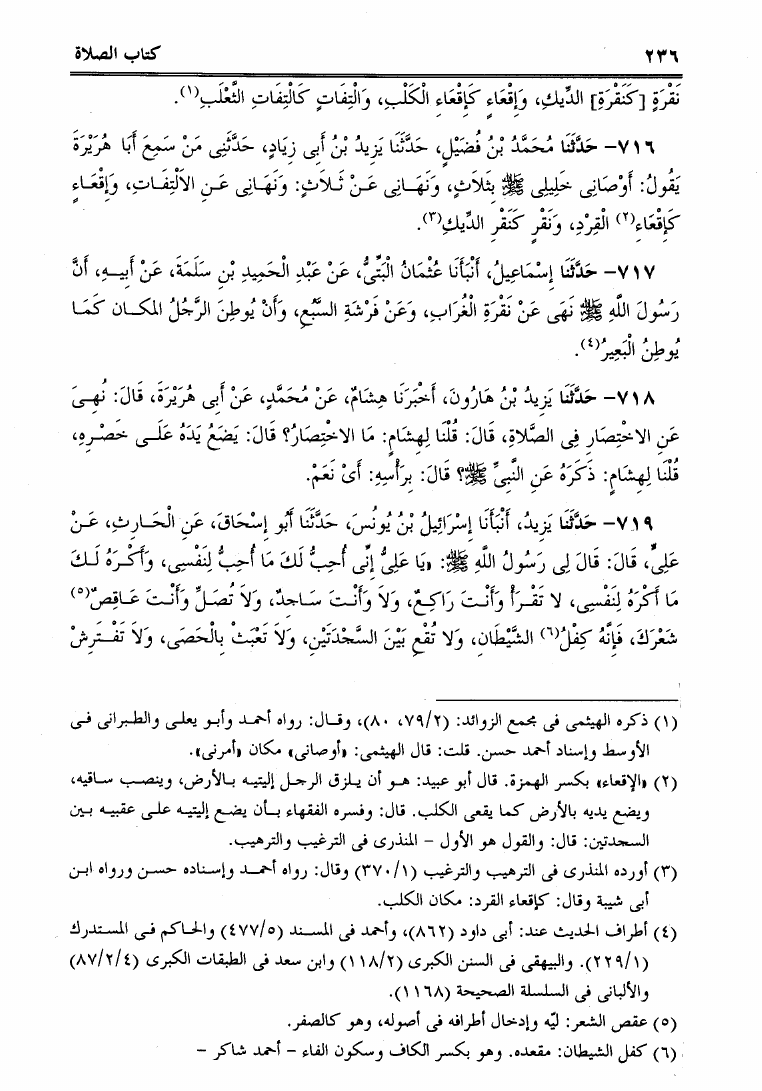 ٢٣٦ كتاب الصلاة
نَقْرَةٍ [كَنَقْرَةِ] الدِّيكِ، وَإِقْعَاءٍ كَإِقْعَاءِ الْكَلْبِ، وَالْتِفَاتٍ كَالْتِفَاتِ الثَّعْلَبِ(١).
٧١٦- حَدَّثَنَا مُحَمَّدُ بْنُ فُضَيْلٍ، حَدَّثَنَا يَزِيدُ بْنُ أَبِى زِيَادٍ، حَدَّثَنِى مَنْ سَمِعَ أَبَا هُرَيْرَةَ
يَقُولُ: أَوْصَانِى خَلِيلِى ﷺ بِثَلاَثٍ، وَنَهَانِى عَنْ ثَلاَثٍ: وَنَهَانِى عَنِ الاَلْتِفَاتِ، وَإِقْعَاءٍ
كَإِقْعَاءِ(٢) الْقِرْدِ، وَنَقْرٍ كَنَقْرِ الدِّيكِ(٣).
٧١٧- حَدَّثَنَا إِسْمَاعِيلُ، أَنْبَأَنَا عُثْمَانُ الْبَتِّىُّ، عَنْ عَبْدِ الْحَمِيدِ بْنِ سَلَمَةَ، عَنْ أَبِيهِ، أَنَّ
رَسُولَ اللَّهِ ﷺ نَهَى عَنْ نَقْرَةِ الْغُرَابِ، وَعَنْ فَرْشَةِ السَّبُعِ، وَأَنْ يُوطِنَ الرَّجُلُ المكان كَمَا
يُوطِنُ الْبَعِيرُ(٤).
٧١٨- حَدَّثَنَا يَزِيدُ بْنُ هَارُونَ، أَخْبَرَنَا هِشَامٌ، عَنْ مُحَمَّدٍ، عَنْ أَبِى هُرَيْرَةَ، قَالَ: نُهِىَ
عَنِ الاخْتِصَارِ فِى الصَّلاَةِ، قَالَ: قُلْنَا لِهِشَامٍ: مَا الاخْتِصَارُ؟ قَالَ: يَضَعُ يَدَهُ عَلَى خَصْرِهِ،
قُلْنَا لِهِشَامٍ: ذَكَرَهُ عَنِ النَّبِىِّ ﷺ؟ قَالَ: بِرَأْسِهِ: أَىْ نَعَمْ.
٧١٩- حَدَّثَنَا يَزِيدُ، أَنْبَأَنَا إِسْرَائِيلُ بْنُ يُونُسَ، حَدَّثَنَا أَبُو إِسْحَاقَ، عَنِ الْحَارِثِ، عَنْ
عَلِىٍّ، قَالَ: قَالَ لِى رَسُولُ اللَّهِ ﷺ: «يَا عَلِىُّ إِنِّى أُحِبُّ لَكَ مَا أُحِبُّ لِنَفْسِى، وَأَكْرَهُ لَكَ
مَا أَكْرَهُ لِنَفْسِى، لا تَقْرَأْ وَأَنْتَ رَاكِعٌ، وَلاَ وَأَنْتَ سَاجِدٌ، وَلاَ تُصَلِّ وَأَنْتَ عَاقِصٌ(٥)
شَعْرَكَ، فَإِنَّهُ كِفْلُ(٦) الشَّيْطَانِ، وَلا تُقْعِ بَيْنَ السَّجْدَتَيْنِ، وَلاَ تَعْبَثْ بِالْحَصَى، وَلاَ تَفْتَرِشْ
(١) ذكره الهيثمى فى مجمع الزوائد: (٧٩/٢، ٨٠)، وقال: رواه أحمد وأبو يعلى والطبرانى فى
الأوسط وإسناد أحمد حسن. قلت: قال الهيثمى: «أوصانى» مكان «أمرنى».
(٢) «الإقعاء» بكسر الهمزة. قال أبو عبيد: هو أن يلزق الرجل إليتيه بالأرض، وينصب ساقيه،
ويضع يديه بالأرض كما يقعى الكلب. قال: وفسره الفقهاء بأن يضع إليتيه على عقبيه بين
السجدتين: قال: والقول هو الأول – المنذرى فى الترغيب والترهيب.
(٣) أورده المنذرى فى الترهيب والترغيب (٣٧٠/١) وقال: رواه أحمد وإسناده حسن ورواه ابن
أبى شيبة وقال: كإقعاء القرد: مكان الكلب.
(٤) أطراف الحديث عند: أبى داود (٨٦٢)، وأحمد فى المسند (٤٧٧/٥) والحاكم فى المستدرك
(٢٢٩/١). والبيهقى فى السنن الكبرى (١١٨/٢) وابن سعد فى الطبقات الكبرى (٨٧/٢/٤)
والألبانى فى السلسلة الصحيحة (١١٦٨).
(٥) عقص الشعر: ليّه وإدخال أطرافه فى أصوله، وهو كالصفر.
(٦) كفل الشيطان: مقعده. وهو بكسر الكاف وسكون الفاء – أحمد شاكر –